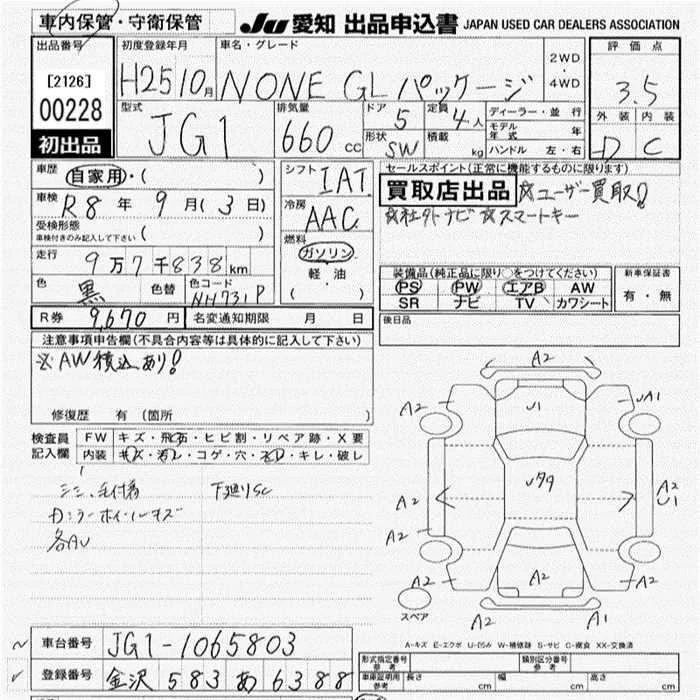 車内保管・守衛保管 JU 愛知 出品申込書 JAPAN USED CAR DEALERS ASSOCIATION
出品番号 初度登録年月 車名・グレード 2WD・4WD 評価点
[2126] H25 10月 N ONE GL パッケージ 3.5
00228 型式 排気量 ドア 定員 ディーラー・並行 外装 内装
初出品 JG1 660cc 5 4人 モデル年式 年 D C
形状 SW 積載 kg ハンドル 左・右
車歴 自家用・( ) シフト IAT セールスポイント(正常に機能するものに限ります)
車検 R8年9月(3日) 冷房 AAC 買取店出品 ☆ユーザー買取!
受検形態 車検付きのみ記入して下さい ( ) ☆社外ナビ ☆スマートキー
走行 9万7千838km 燃料 ガソリン 軽油 ( )
色 黒 色替 色コード NH731P 装備品(純正品に限り○をつけてください) 新車保証書
PS PW エアB AW 有・無
SR ナビ TV カワシート
R券 9,670円 名変通知期限 月 日 後日品
注意事項申告欄(不具合内容等は具体的に記入して下さい)
※AW積込あり!
修復歴 有 (箇所 )
検査員記入欄 FW キズ・飛石・ヒビ割・リペア跡・X要
内装 キズ・汚レ・コゲ・穴・ネジ・キレ・破レ
下廻りSC
各AU
A2
A2 U1 UA1
A2 A2 U1
A2
A2 A2 A2
スペア A2 A1
A-キズ E-エクボ U-凹み W-補修跡 S-サビ C-腐食 XX-交換済
車台番号 JG1-1065803 型式指定番号 参考 類別区分番号 参考
登録番号 金沢 583 あ 6388 車庫証明用 参考 長さ cm 幅 cm 高さ cm